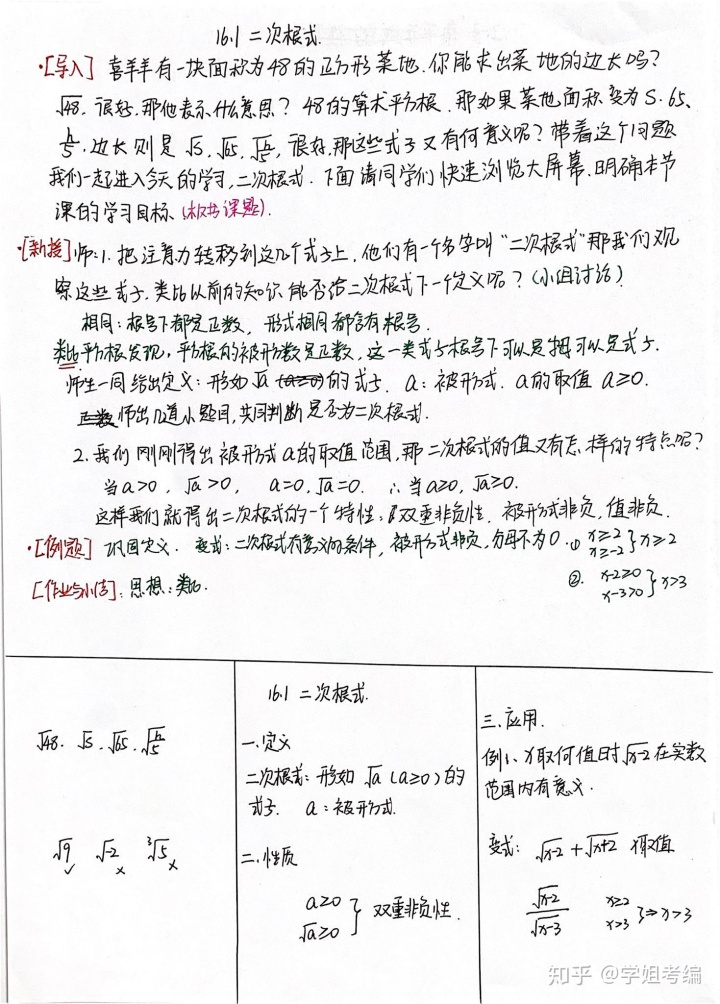 16.1 二次根式.
·[导入] 喜羊羊有一块面积为48的正方形菜地.你能求出菜地的边长吗?
√48. 很好.那他表示什么意思? 48的算术平方根. 那如果菜地面积变为S. 65、
h/5. 边长则是 √S. √65. √(h/5). 很好.那这些式子又有何意义呢? 带着这个问题
我们一起进入今天的学习,二次根式. 下面请同学们快速浏览大屏幕.明确本节
课的学习目标、(板书课题).
·[新授] 师:1.把注意力转移到这几个式子上,他们有一个名字叫“二次根式”那我们观
察这些式子.类比以前的知识能否给二次根式下一个定义呢? (小组讨论)
相同:根号下都是正数, 形式相同都含有根号.
类比平方根发现,平方根的被开方数是正数,这一类式子根号下可以是可以是式子.
师生一同给出定义:形如√a (a≥0)的式子. a:被开方式. a的取值 a≥0.
正数 师出几道小题目,共同判断是否为二次根式.
2.我们刚刚得出被开方式a的取值范围,那二次根式的值又有怎样的特点呢?
当a>0, √a>0, a=0.√a=0. ∴当a≥0, √a≥0.
这样我们就得出二次根式的一个特性:双重非负性. 被开方式非负,值非负.
·[例题] 巩固定义. 变式:二次根式有意义的条件,被开方式非负,分母不为0. ① x≥2 x≥-2 } x≥2
[作业与小结]:思想:类比. ② x-2≥0 x-3>0 } x>3
√48. √S. √65. √(h/5)
√9 √-2 ³√5
✓ × ×
16.1 二次根式.
一.定义
二次根式:形如 √a (a≥0)的
式子. a:被开方式.
二.性质
a≥0
√a≥0 } 双重非负性.
三.应用.
例1、x取何值时√x-2在实数
范围内有意义.
变式: √x-2 + √x+2 x取值
√x-2 / √x-3 x≥2 x>3 } ⇒ x>3
知乎 @学姐考编